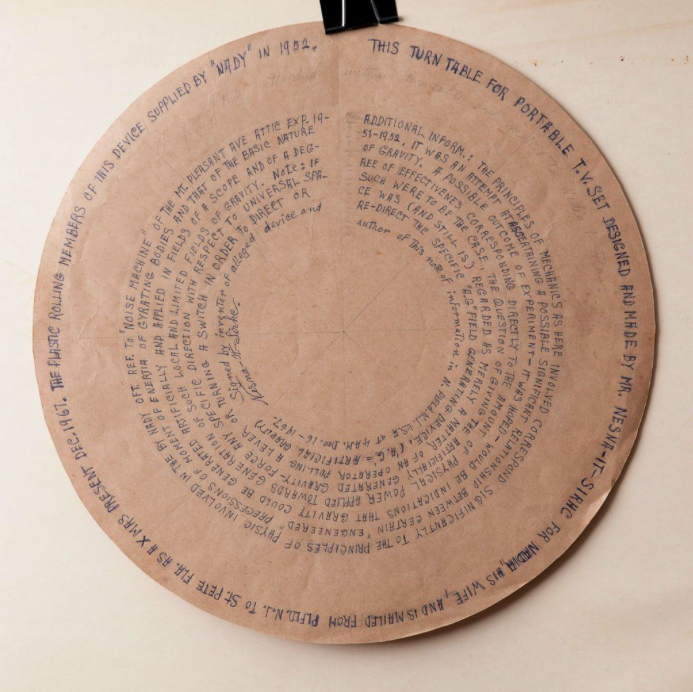 THIS TURN TABLE FOR PORTABLE T.V. SET DESIGNED AND MADE BY MR. NESHA-IT-SIRHC FOR NADIA, HIS WIFE, AND IS MAILED FROM PLFLD. N.J. TO St. PETE FLA. AS A XMAS PRESENT DEC-1967. THE PLASTIC ROLLING MEMBERS OF THIS DEVICE SUPPLIED BY "NADY" IN 1952.
ADDITIONAL INFORM.: THE PRINCIPLES OF MECHANICS AS HERE INVOLVED CORRESPOND SIGNIFICANTLY TO THE PRINCIPLES OF PHYSIC INVOLVED IN THE BY NADY OFT. REF. TO "NOISE MACHINE" OF THE MT. PLEASANT AVE ATTIC EXP. 19-
51-1952. IT WAS AN ATTEMPT AT ASCERTAINING A POSSIBLE SIGNIFICANT RELATIONSHIP BETWEEN CERTAIN "ENGENEERED" PRECESSIONS OF MOMENT OF ENERTIA OF GYRATING BODIES AND THAT OF THE BASIC NATURE
OF GRAVITY. A POSSIBLE OUTCOME OF EXPERIMENT - IT WAS HOPED - COULD BE PHYSICAL INDICATIONS THAT GRAVITY COULD BE GENERATED ARTIFICIALLY AND APPLIED IN FIELDS OF A SCOPE AND OF A DEG-
REE OF EFFECTIVENES CORRESPONDING DIRECTLY TO THE AMOUNT OF ARTIFICIALLY GENERATED POWER APPLIED TOWARDS GENERATION OF SUCH LOCAL AND LIMITED FIELDS OF GRAVITY. NOTE: IF
SUCH WERE TO BE THE CASE, THE QUESTION OF GIVING THE PULLING GRAVITY FORCE ANY SPECIFIC DIRECTION WITH RESPECT TO UNIVERSAL SPA-
CE WAS (AND STILL IS) REGARDED AS MERELY A MATTER OF AN OPERATOR PULLING A LEVER OR TURNING A SWITCH IN ORDER TO DIRECT OR
RE-DIRECT THE SPECIFIC "A.G." FIELD GENERATING DEVICE. (A.G. = ARTIFICIAL GRAVITY) Signed by inventor of alleged device and
author of this note of information in N. Plfd. N.J. U.S.A. at 4 A.M. Dec. 16-1967.